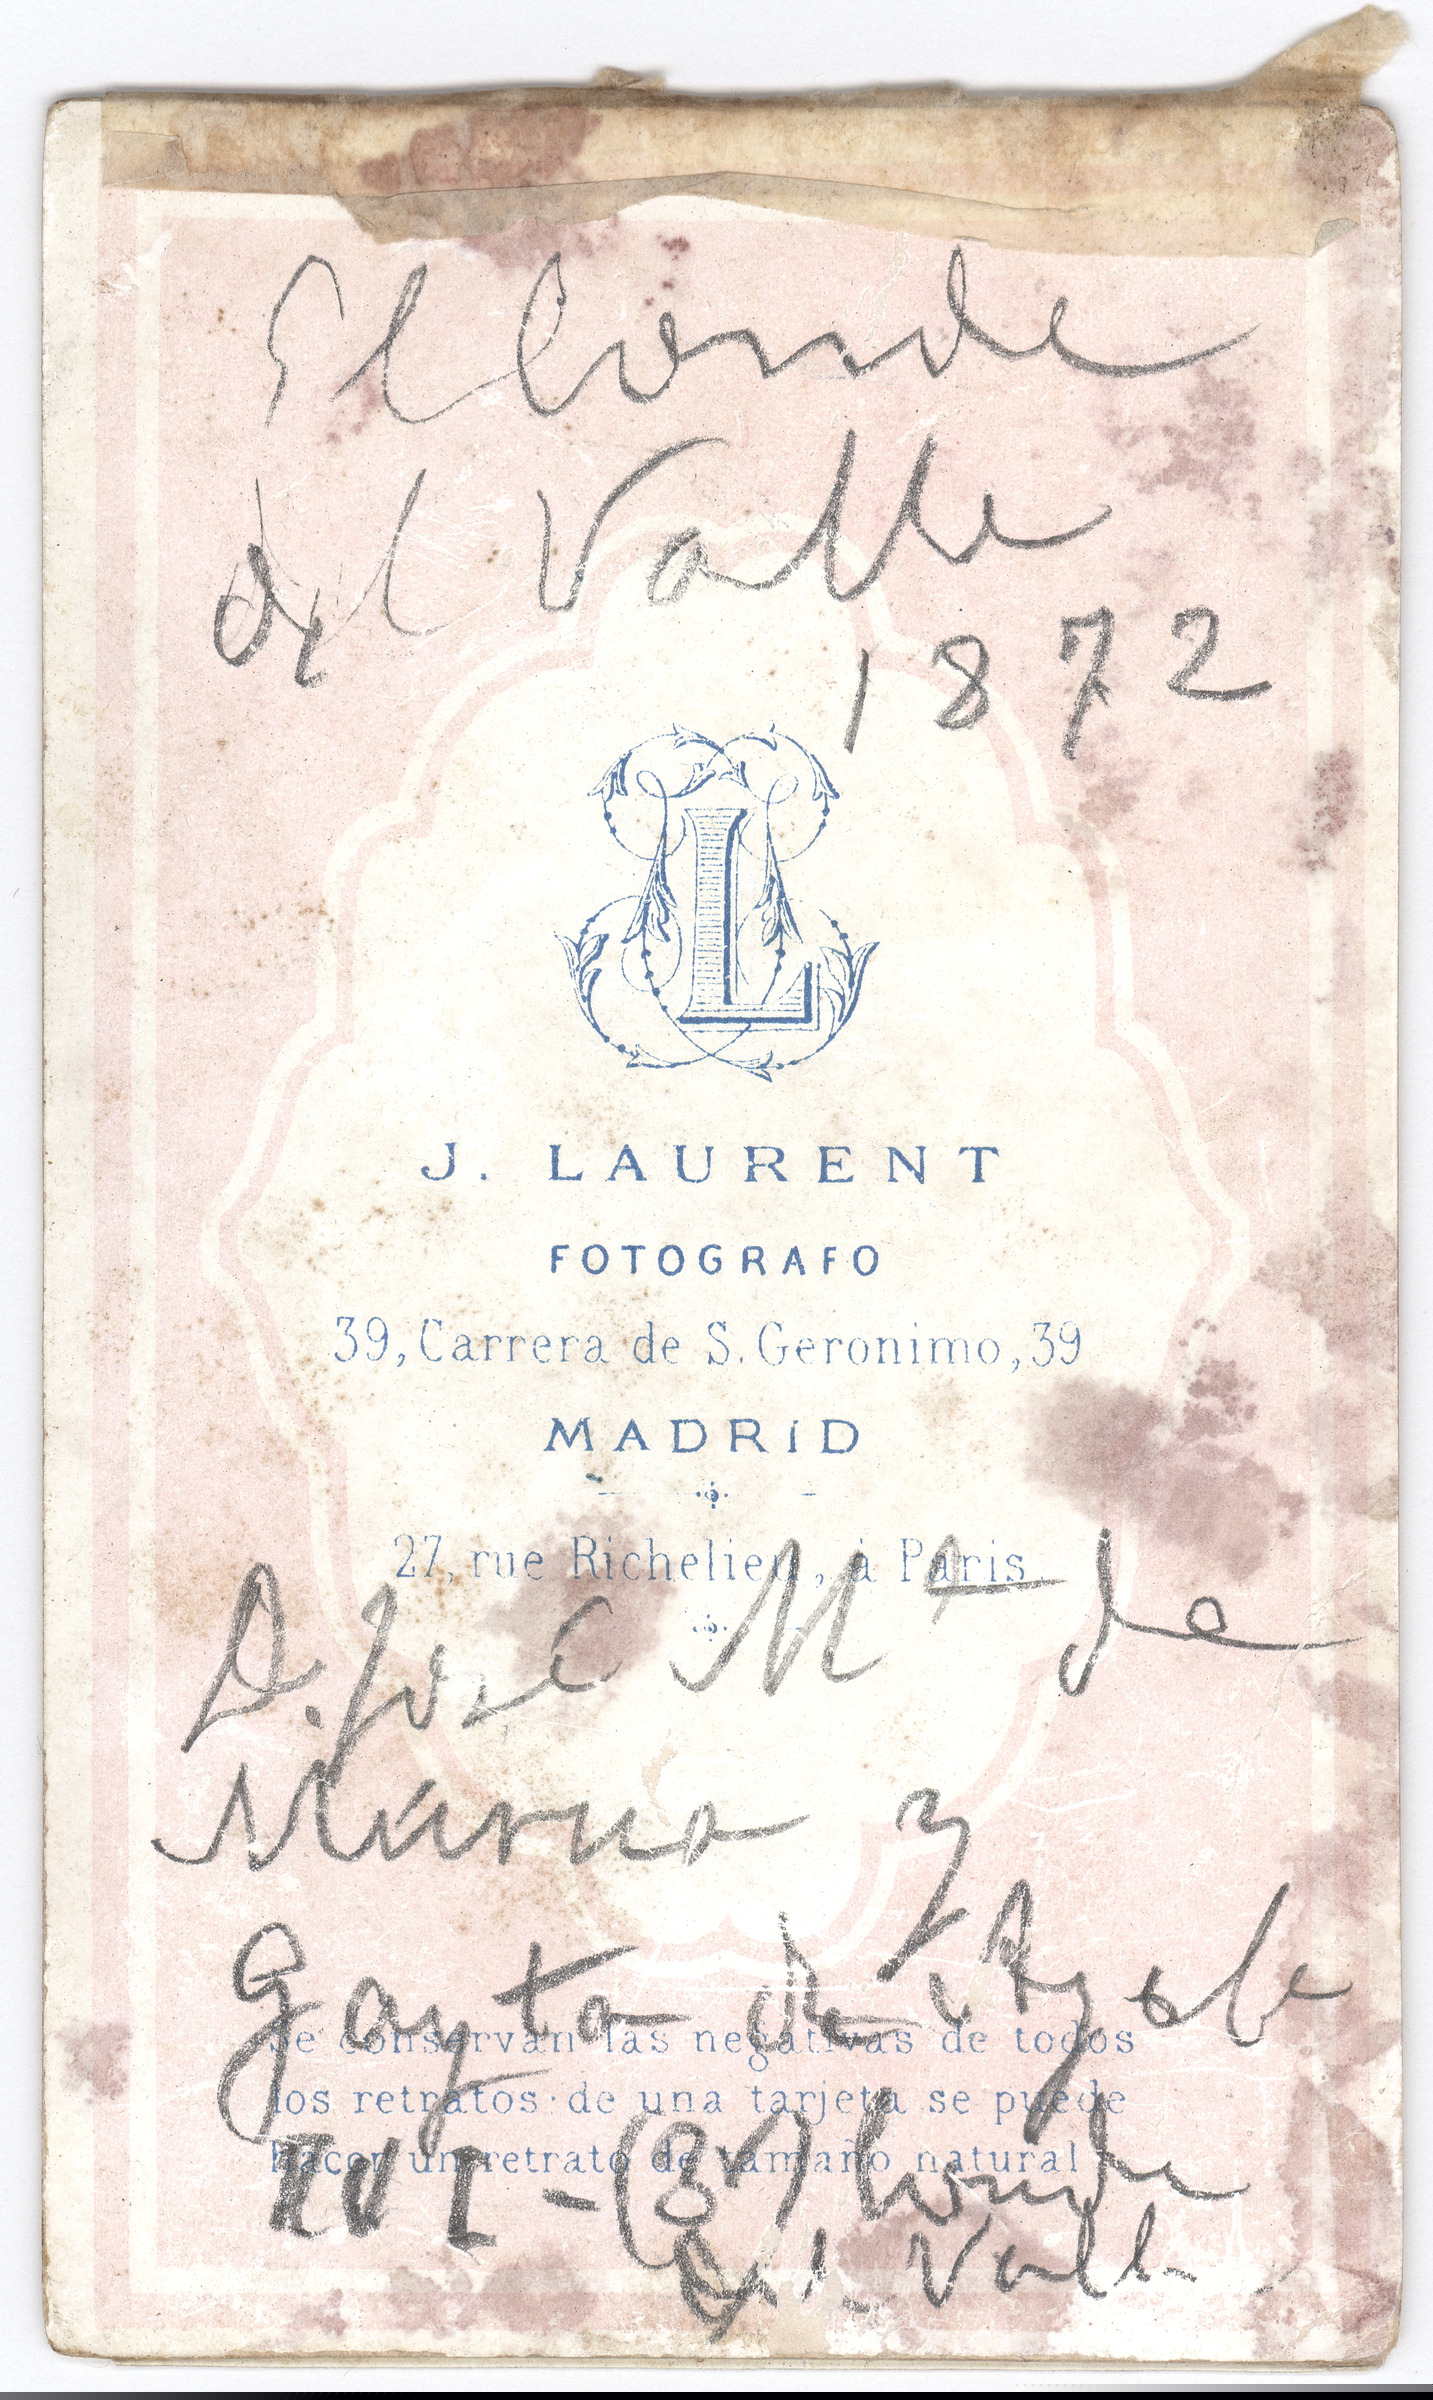 El Conde
del Valle
1872
L
J. LAURENT
FOTOGRAFO
39, Carrera de S. Geronimo, 39
MADRID
27, rue Richelieu, à Paris.
D. José Mª de
Murua y
Gayta de Ayala
Se conservan las negativas de todos
los retratos de una tarjeta se puede
hacer un retrato de tamaño natural
XVI - (8º) Conde
del Valle